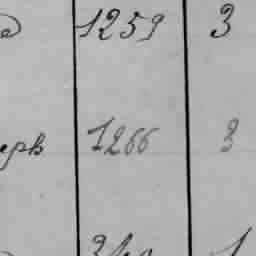 1259 3
ерв 1266 3